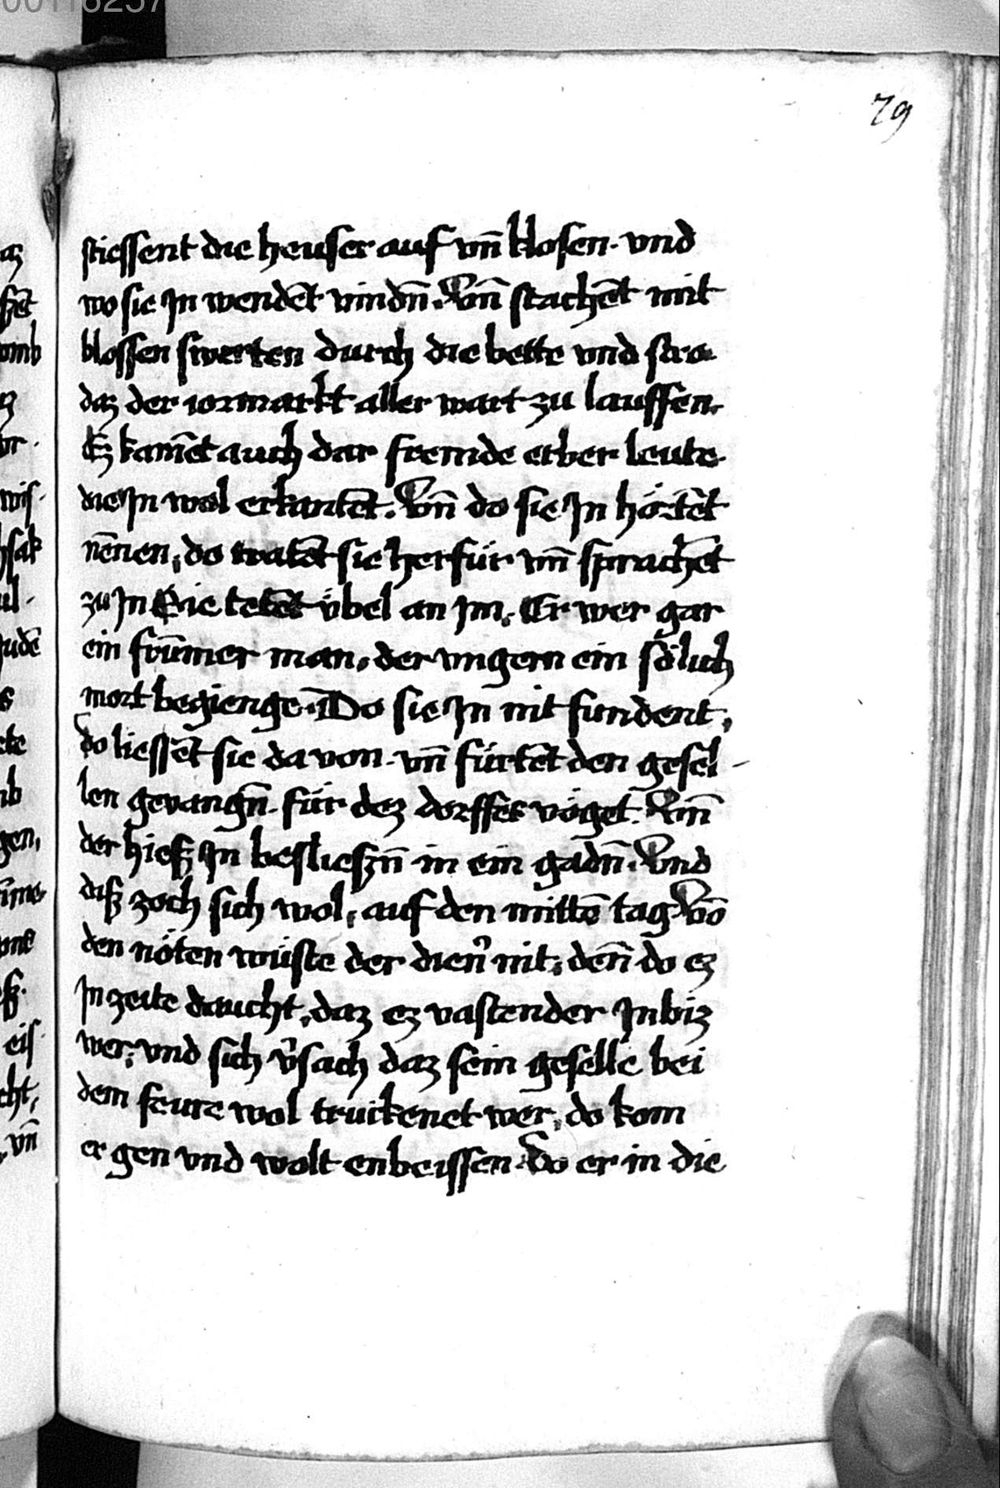 79
stiessent die heuser auf vn̄ klosen. vnd
wo sie Jn wendēt vindn̄. Vn̄ stachēt mit
blossen swerten durch die bette vnd stro.
daz der iormarkt aller wart zu lauffen.
Ez kamēt auch dar fremde erber leute.
die Jn wol erkantēt. Vn̄ do sie Jn hörtēt
nēnen, do tratēt sie herfür vn̄ sprachēt
zu Jn Sie tetēt übel an Jm. Er wer gar
ein frūmer man, der vngern ein sölich
mort begienge. Do sie Jn nit fundent,
do liessēt sie da von. vn̄ fürtēt den gesel-
len gevangn̄. für dez dorffes vöget. Vn̄
der hiesz Jn beslieszn̄ in ein gadn̄. Vnd
disz zoch sich wol, auf den mittē tag Vō
den nöten wüste der dien̓ nit, den̄ do ez
Jn zeite daucht, daz ez vastender Jnbiz
wer, vnd sich v̓sach daz sein geselle bei
dem feure wol truckenet wer, do kom
er gen vnd wolt enbeissen. Do er in die